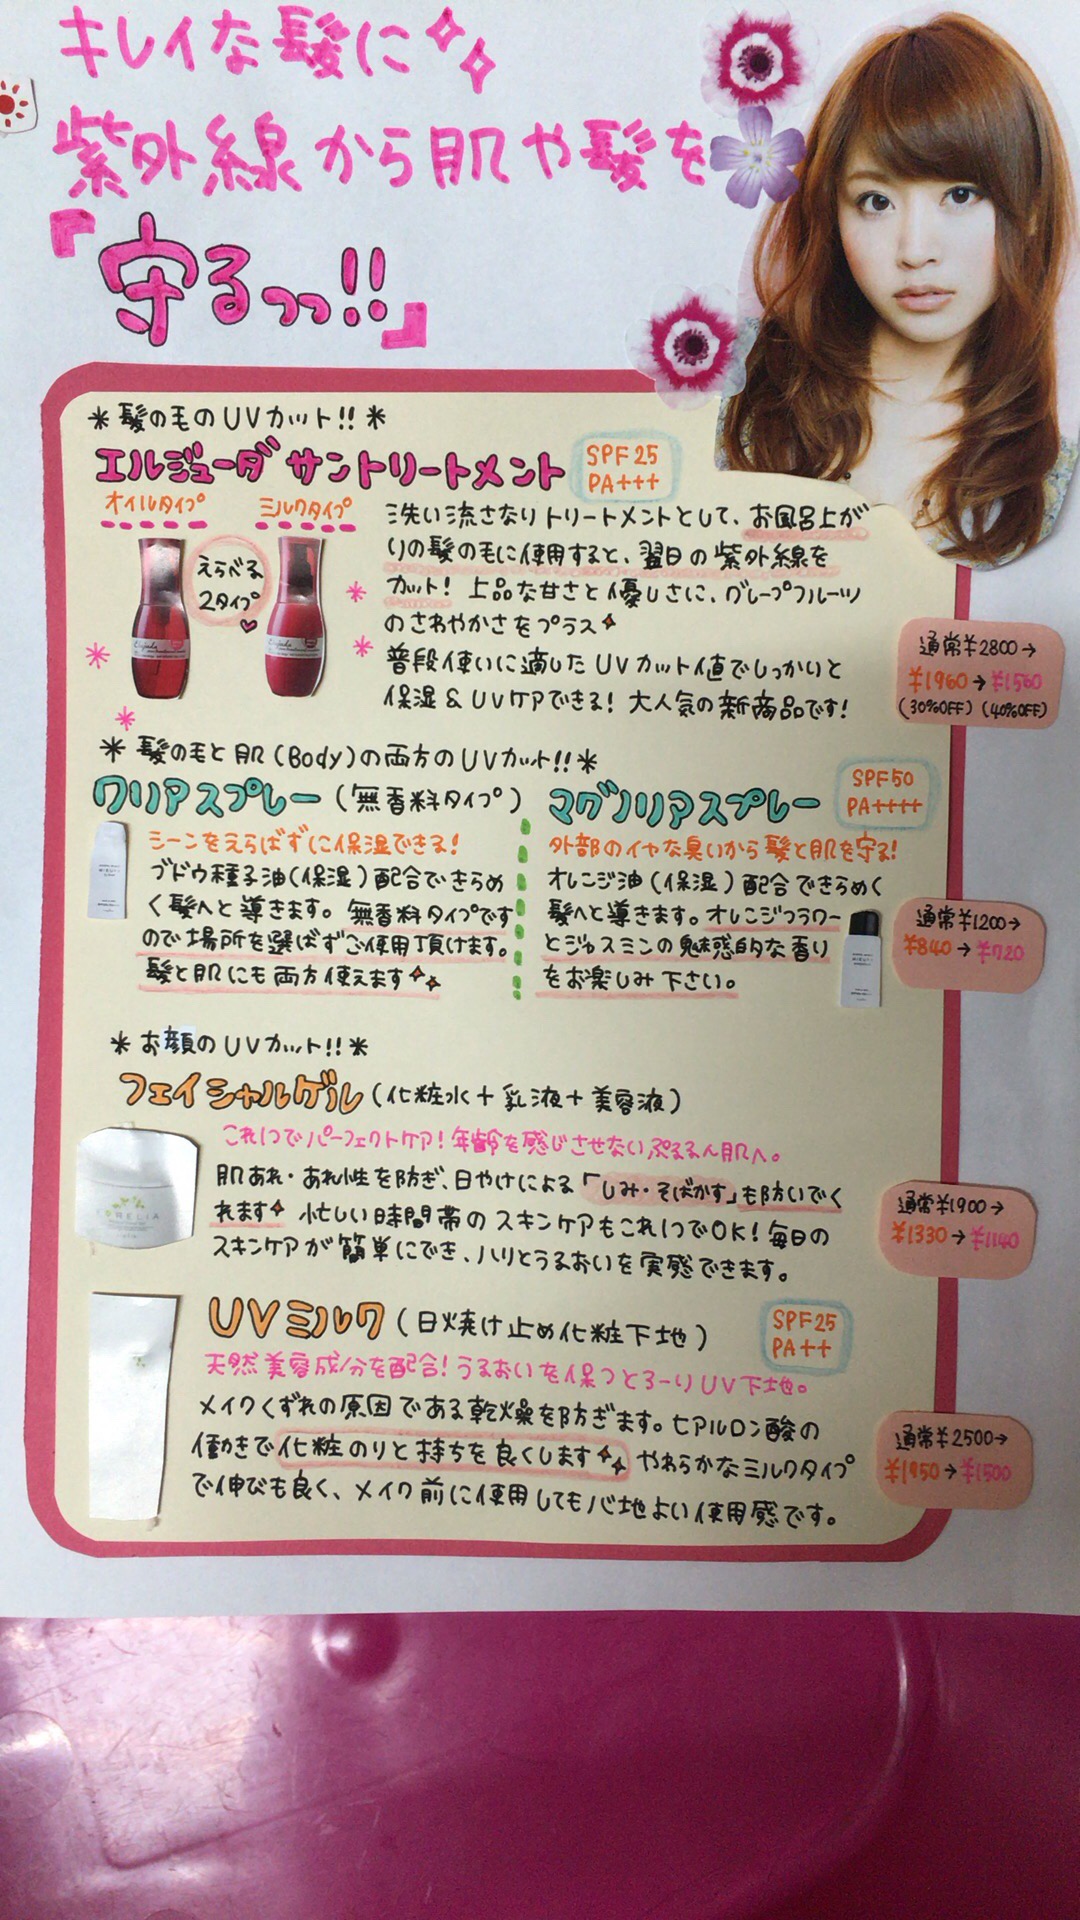 キレイな髪に
紫外線から肌や髪を
『守るっっ!!』
＊髪の毛のUVカット!!＊
エルジューダ サントリートメント
SPF25
PA+++
オイルタイプ
ミルクタイプ
えらべる
2タイプ
洗い流さなりトリートメントとして、お風呂上が
りの髪の毛に使用すると、翌日の紫外線を
カット! 上品な甘さと優しさに、グレープフルーツ
のさわやかさをプラス
普段使いに適したUVカット値でしっかいと
保湿&UVケアできる! 大人気の新商品です!
通常¥2800→
¥1960→¥1560
(30%OFF) (40%OFF)
＊髪の毛と肌(Body)の両方のUVカット!!＊
ワリアスプレー(無香料タイプ)
シーンをえらばずに保湿できる!
ブドウ種子油(保湿)配合できらめ
く髪へと導きます。無香料タイプです
ので場所を選ばずご使用頂けます。
髪と肌にも両方使えます
マグノリアスプレー
SPF50
PA++++
外部のイヤな臭いから髪と肌を守る!
オレンジ油(保湿)配合できらめく
髪へと導きます。オレンジフラワー
とジャスミンの魅惑的な香り
をお楽しみ下さい。
通常¥1200→
¥840→¥720
＊お顔のUVカット!!＊
フェイシャルゲル(化粧水+乳液+美容液)
これ1つでパーフェクトケア! 年齢を感じさせないぷるるん肌へ。
肌あれ・あれ性を防ぎ、日やけによる「しみ・そばかす」も防いでく
れます 忙しい時間帯のスキンケアもこれ1つでOK! 毎日の
スキンケアが簡単にでき、ハリとうるおいを実感できます。
通常¥1900→
¥1330→¥1140
UVミルク(日焼け止め化粧下地)
SPF25
PA++
天然美容成分を配合! うるおいを保つとろーりUV下地。
メイクくずれの原因である乾燥を防ぎます。ヒアルロン酸の
働きで化粧のりと持ちを良くします やわらかなミルクタイプ
で伸びも良く、メイク前に使用しても心地よい使用感です。
通常¥2500→
¥1950→¥1500